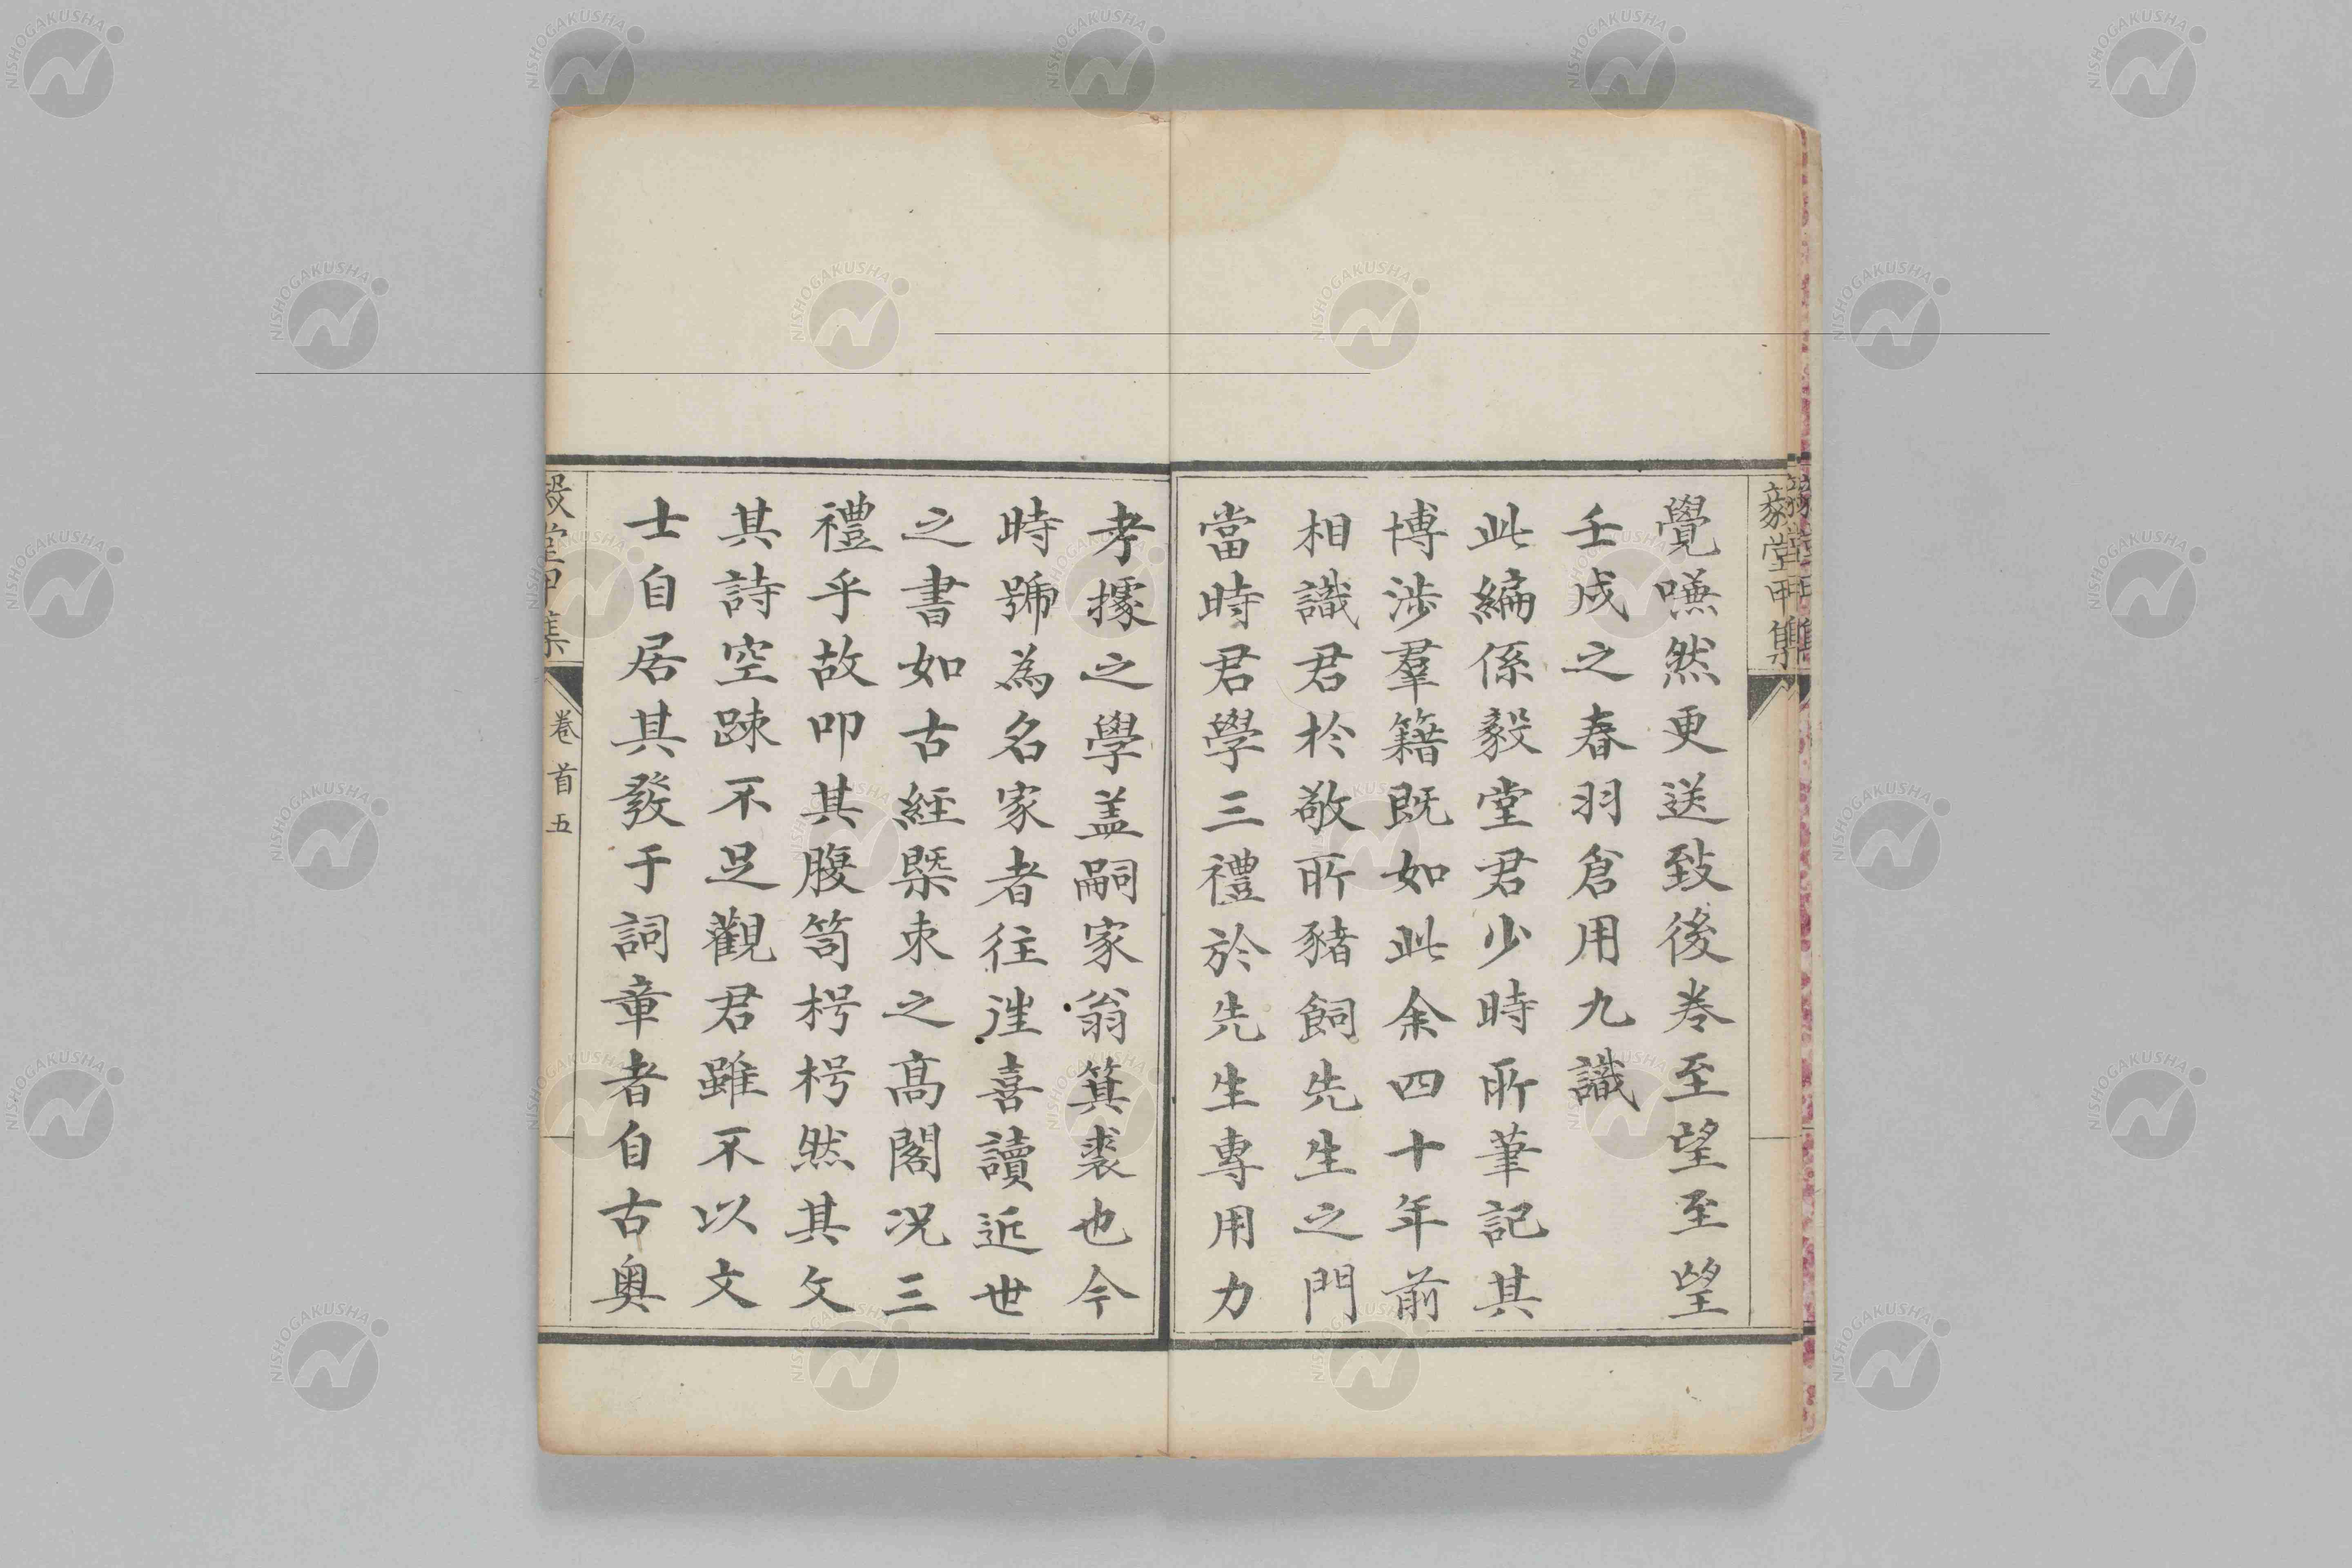 覺嗛然更送致後卷至望至望
壬戌之春羽倉用九識
此編係毅堂君少時所筆記其
博渉羣籍既如此余四十年前
相識君於敬所豬飼先生之門
當時君學三禮於先生專用力
考據之學盖嗣家翁箕裘也今
時號為名家者往往喜讀近世
之書如古經槩束之高閣况三
禮乎故叩其腹笥枵枵然其文
其詩空踈不足觀君雖不以文
士自居其發于詞章者自古奥
毅堂甲集
卷首
五